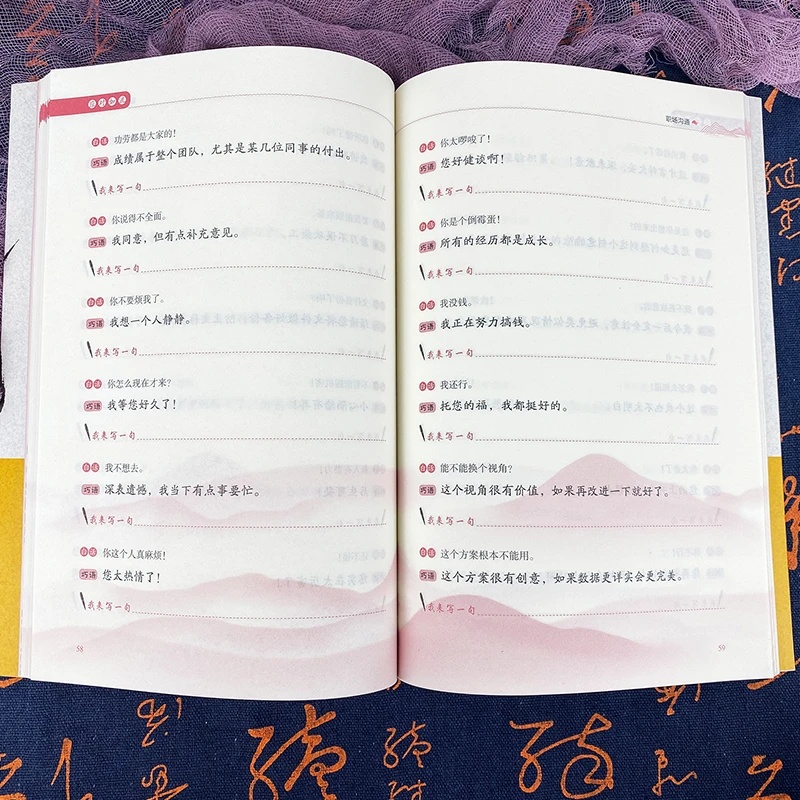 白话 功劳都是大家的!
巧语 成绩属于整个团队,尤其是某几位同事的付出。
我来写一句
白话 你说得不全面。
巧语 我同意,但有点补充意见。
我来写一句
白话 你不要烦我了。
巧语 我想一个人静静。
我来写一句
白话 你怎么现在才来?
巧语 我等您好久了!
我来写一句
白话 我不想去。
巧语 深表遗憾,我当下有点事要忙。
我来写一句
白话 你这个人真麻烦!
巧语 您太热情了!
我来写一句
58
职场沟通
白话 你太啰唆了!
巧语 您好健谈啊!
我来写一句
白话 你是个倒霉蛋!
巧语 所有的经历都是成长。
我来写一句
白话 我没钱。
巧语 我正在努力搞钱。
我来写一句
白话 我还行。
巧语 托您的福,我都挺好的。
我来写一句
白话 能不能换个视角?
巧语 这个视角很有价值,如果再改进一下就好了。
我来写一句
白话 这个方案根本不能用。
巧语 这个方案很有创意,如果数据更详实会更完美。
我来写一句
59